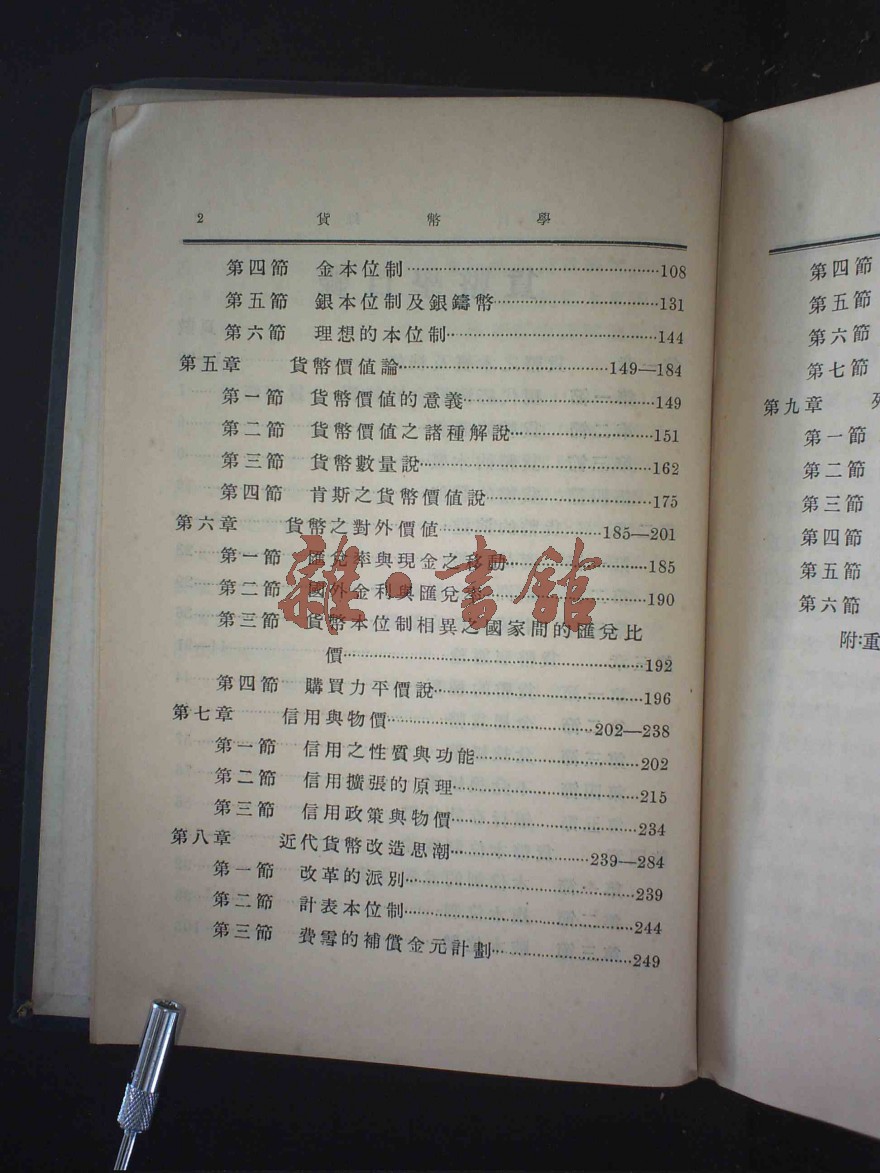 2 貨幣學
第四節 金本位制……108
第五節 銀本位制及銀鑄幣……131
第六節 理想的本位制……144
第五章 貨幣價值論……149—184
第一節 貨幣價值的意義……149
第二節 貨幣價值之諸種解說……151
第三節 貨幣數量說……162
第四節 肯斯之貨幣價值說……175
第六章 貨幣之對外價值……185—201
第一節 匯兌率與現金之移動……185
第二節 國外金利與匯兌率……190
第三節 貨幣本位制相異之國家間的匯兌比
價……192
第四節 購買力平價說……196
第七章 信用與物價……202—238
第一節 信用之性質與功能……202
第二節 信用擴張的原理……215
第三節 信用政策與物價……234
第八章 近代貨幣改造思潮……239—284
第一節 改革的派別……239
第二節 計表本位制……244
第三節 費雪的補償金元計劃……249
雜·書館
第四節
第五節
第六節
第七節
第九章
第一節
第二節
第三節
第四節
第五節
第六節
附:重